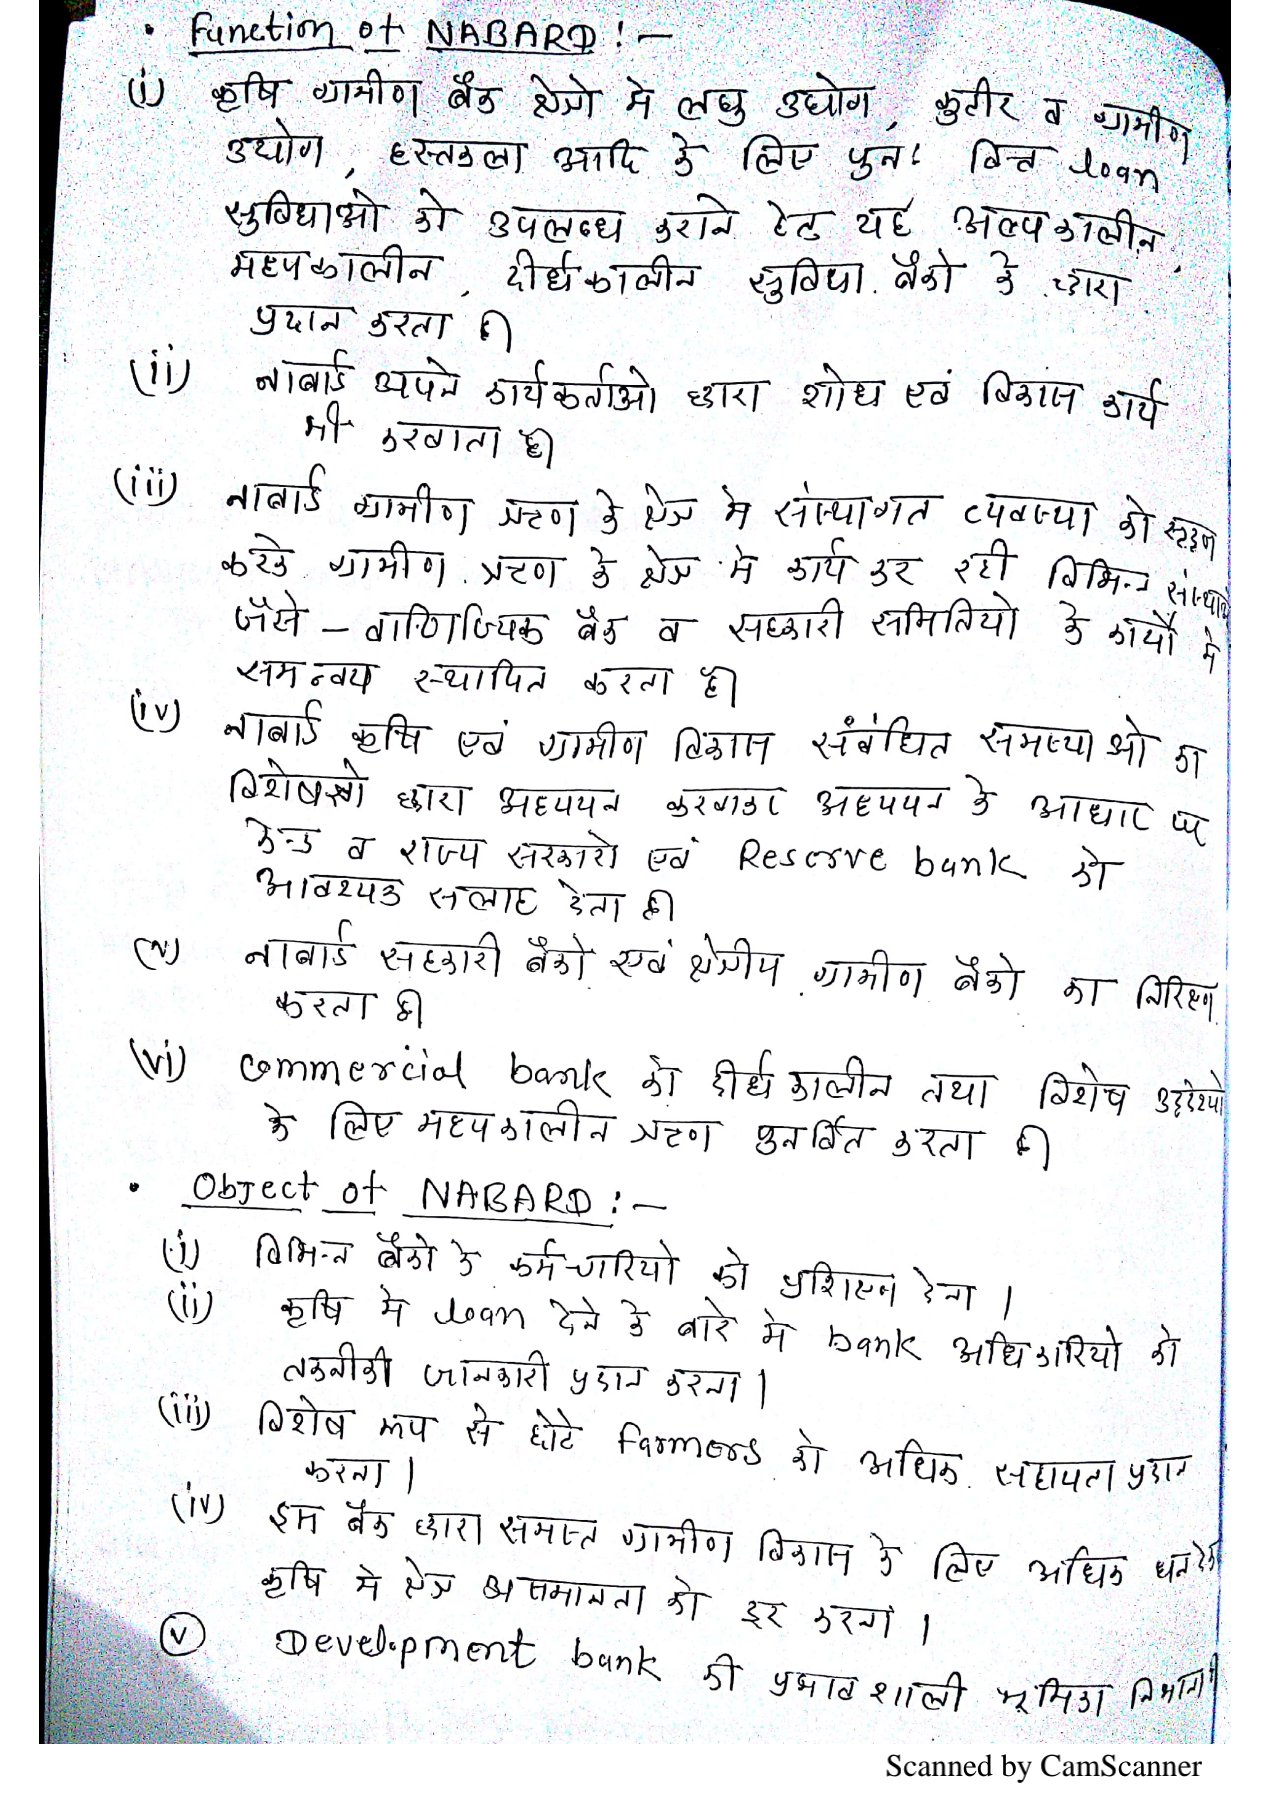 • Function of NABARD : —
(i) कृषि ग्रामीण बैंक क्षेत्रो मे लघु उघोग, कुटीर व ग्रामीण
उघोग, हस्तकला आदि के लिए पुनः वित्त loan
सुविधाओ को उपलब्ध कराने हेतु यह अल्पकालीन,
मध्यकालीन, दीर्घकालीन सुविधा बैंको के द्वारा
प्रदान करता है।
(ii) नाबार्ड अपने कार्यकर्ताओ द्वारा शोध एवं विकास कार्य
भी करवाता है।
(iii) नाबार्ड ग्रामीण ऋण के क्षेत्र मे संस्थागत व्यवस्था को सुदृढ़
करके ग्रामीण ऋण के क्षेत्र मे कार्य कर रही विभिन्न संस्थाये
जैसे – वाणिज्यिक बैंक व सहकारी समितियो के कार्यो मे
समन्वय स्थापित करता है।
(iv) नाबार्ड कृषि एवं ग्रामीण विकास संबंधित समस्याओ का
विशेषज्ञो द्वारा अध्ययन करवाकर अध्ययन के आधार पर
केन्द्र व राज्य सरकारो एवं Reserve bank को
आवश्यक सलाह देता है।
(v) नाबार्ड सहकारी बैंको एवं क्षेत्रीय ग्रामीण बैंको का निरिक्षण
करता है।
(vi) Commercial bank को दीर्घकालीन तथा विशेष उद्देश्यो
के लिए मध्यकालीन ऋण पुनर्वित करता है।
• Object of NABARD : —
(i) विभिन्न बैंको के कर्मचारियो को प्रशिक्षण देना।
(ii) कृषि मे loan देने के बारे मे bank अधिकारियो को
तकनीकी जानकारी प्रदान करना।
(iii) विशेष रूप से छोटे Farmers को अधिक सहायता प्रदान
करना।
(iv) इस बैंक द्वारा समस्त ग्रामीण विकास के लिए अधिक धन देकर
कृषि मे क्षेत्र असमानता को दूर करना।
(v) Development bank की प्रभावशाली भूमिका निभाना
Scanned by CamScanner